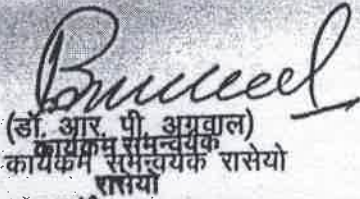 (डॉ. आर. पी. अग्रवाल)
कार्यक्रम समन्वयक
कार्यक्रम समन्वयक रासेयो
रासेयो